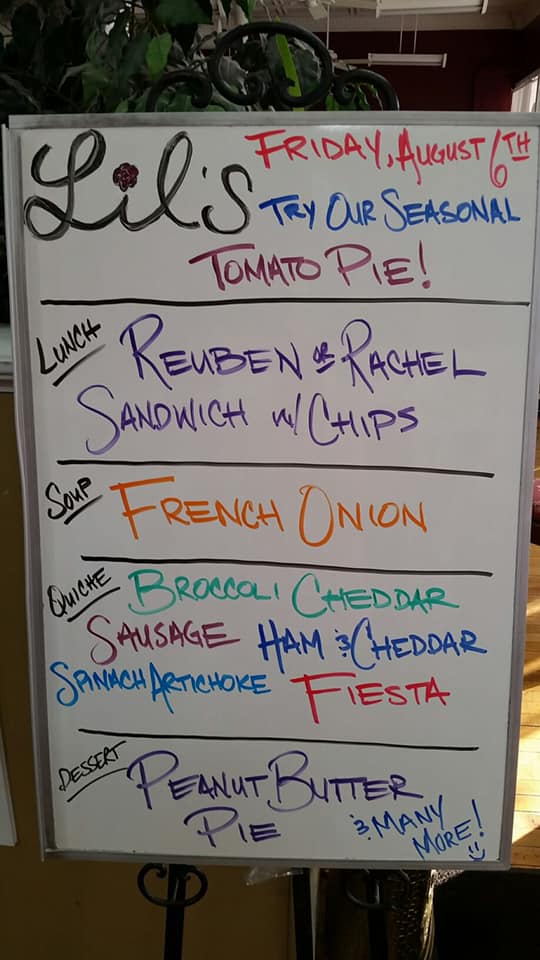 Lil's
FRIDAY, AUGUST 6TH
TRY OUR SEASONAL
TOMATO PIE!
LUNCH
REUBEN OR RACHEL
SANDWICH W/ CHIPS
SOUP
FRENCH ONION
QUICHE
BROCCOLI CHEDDAR
SAUSAGE HAM & CHEDDAR
SPINACH ARTICHOKE FIESTA
DESSERT
PEANUT BUTTER
PIE
& MANY
MORE!